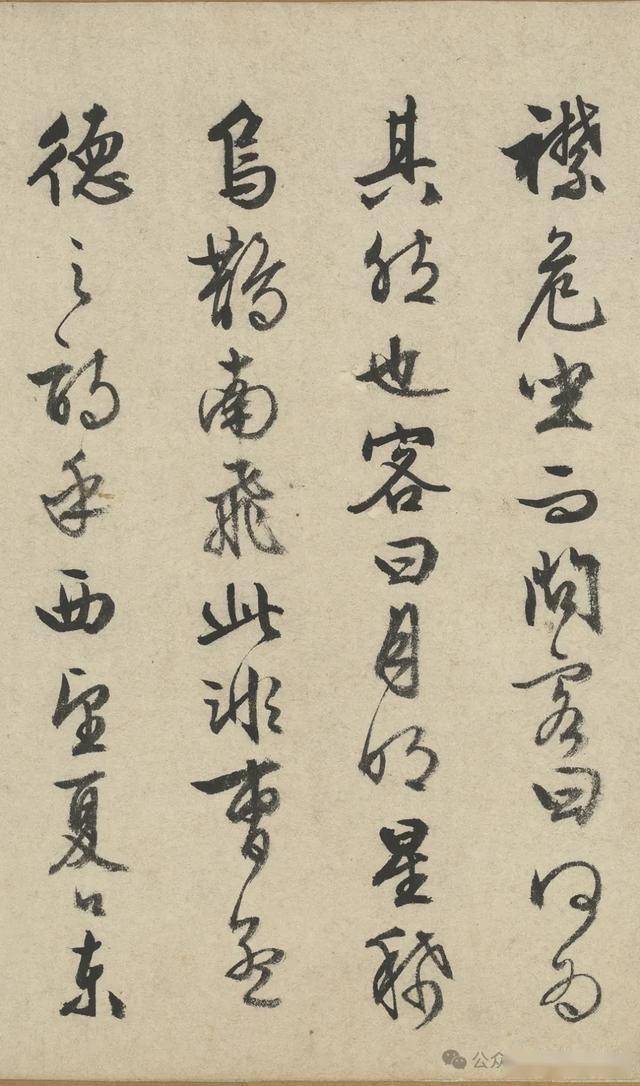 襟危坐而問客曰何為
其然也客曰月明星稀
烏鵲南飛此非曹孟
德之詩乎西望夏口東
公众